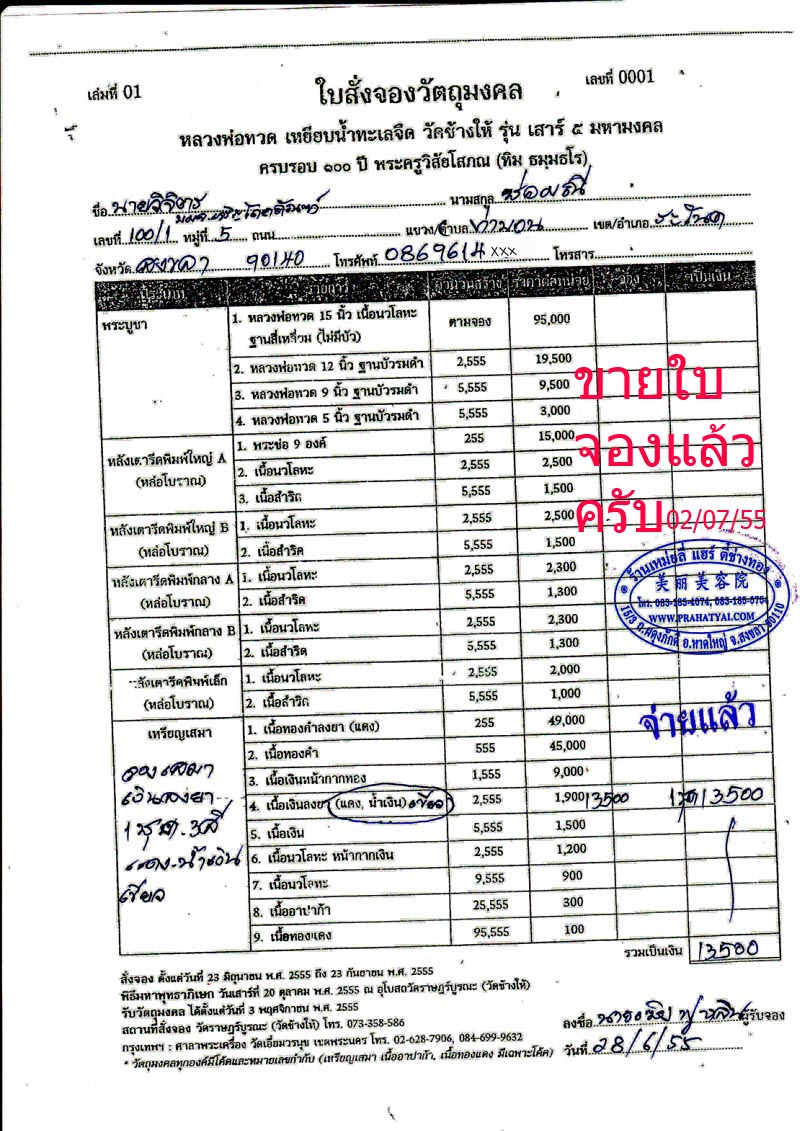 เล่มที่ 01
เลขที่ 0001
ใบสั่งจองวัตถุมงคล
หลวงพ่อทวด เหยียบน้ำทะเลจืด วัดช้างให้ รุ่น เสาร์ ๕ มหามงคล
ครบรอบ ๑๐๐ ปี พระครูวิสัยโสภณ (ทิม ธมฺมธโร)
ชื่อ นามสกุล
เลขที่ 100/1 หมู่ที่ 5 ถนน แขวง/ตำบล ท่ามอน เขต/อำเภอ ระโนด
จังหวัด สงขลา 90140 โทรศัพท์ 0869614 xxx โทรสาร
ประเภท รายการ จำนวนสร้าง ราคาจำหน่าย จอง เป็นเงิน
พระบูชา
1. หลวงพ่อทวด 15 นิ้ว เนื้อนวโลหะ ตามจอง 95,000
ฐานสี่เหลี่ยม (ไม่มีบัว)
2. หลวงพ่อทวด 12 นิ้ว ฐานบัวรมดำ 2,555 19,500
3. หลวงพ่อทวด 9 นิ้ว ฐานบัวรมดำ 5,555 9,500
4. หลวงพ่อทวด 5 นิ้ว ฐานบัวรมดำ 5,555 3,000
ขายใบ
จองแล้ว
ครับ 02/07/55
หลังเตารีดพิมพ์ใหญ่ A
(หล่อโบราณ)
1. พระช่อ 9 องค์ 255 15,000
2. เนื้อนวโลหะ 2,555 2,500
3. เนื้อสำริด 5,555 1,500
หลังเตารีดพิมพ์ใหญ่ B
(หล่อโบราณ)
1. เนื้อนวโลหะ 2,555 2,500
2. เนื้อสำริด 5,555 1,500
หลังเตารีดพิมพ์กลาง A
(หล่อโบราณ)
1. เนื้อนวโลหะ 2,555 2,300
2. เนื้อสำริด 5,555 1,300
หลังเตารีดพิมพ์กลาง B
(หล่อโบราณ)
1. เนื้อนวโลหะ 2,555 2,300
2. เนื้อสำริด 5,555 1,300
หลังเตารีดพิมพ์เล็ก
(หล่อโบราณ)
1. เนื้อนวโลหะ 2,555 2,000
2. เนื้อสำริด 5,555 1,000
ร้านเหม่ยลี่ แฮร์ ตี๋ช่างทอง
美丽美容院
WWW.PRAHATYAI.COM
15/3 ถ.ผดุงภักดี อ.หาดใหญ่ จ.สงขลา 90110
จ่ายแล้ว
เหรียญเสมา
1. เนื้อทองคำลงยา (แดง) 255 49,000
2. เนื้อทองคำ 555 45,000
3. เนื้อเงินหน้ากากทอง 1,555 9,000
4. เนื้อเงินลงยา (แดง, น้ำเงิน) เขียว 2,555 1,900 13500 13500
5. เนื้อเงิน 5,555 1,500
6. เนื้อนวโลหะ หน้ากากเงิน 2,555 1,200
7. เนื้อนวโลหะ 9,555 900
8. เนื้ออาปาก้า 25,555 300
9. เนื้อทองแดง 95,555 100
จองเสมา
เงินลงยา
1 ชุด 3 สี
แดง-น้ำเงิน
เขียว
รวมเป็นเงิน 13500
สั่งจอง ตั้งแต่วันที่ 23 มิถุนายน พ.ศ. 2555 ถึง 23 กันยายน พ.ศ. 2555
พิธีมหาพุทธาภิเษก วันเสาร์ที่ 20 ตุลาคม พ.ศ. 2555 ณ อุโบสถวัดราษฎร์บูรณะ (วัดช้างให้)
รับวัตถุมงคล ได้ตั้งแต่วันที่ 3 พฤศจิกายน พ.ศ. 2555
สถานที่สั่งจอง วัดราษฎร์บูรณะ (วัดช้างให้) โทร. 073-358-586
กรุงเทพฯ : ศาลาพระเครื่อง วัดเอี่ยมวรนุช เขตพระนคร โทร. 02-628-7906, 084-699-9632
* วัตถุมงคลทุกองค์มีโค๊ดและหมายเลขกำกับ (เหรียญเสมา เนื้ออาปาก้า, เนื้อทองแดง มีเฉพาะโค๊ด)
ลงชื่อ ผู้รับจอง
วันที่ 28/6/55